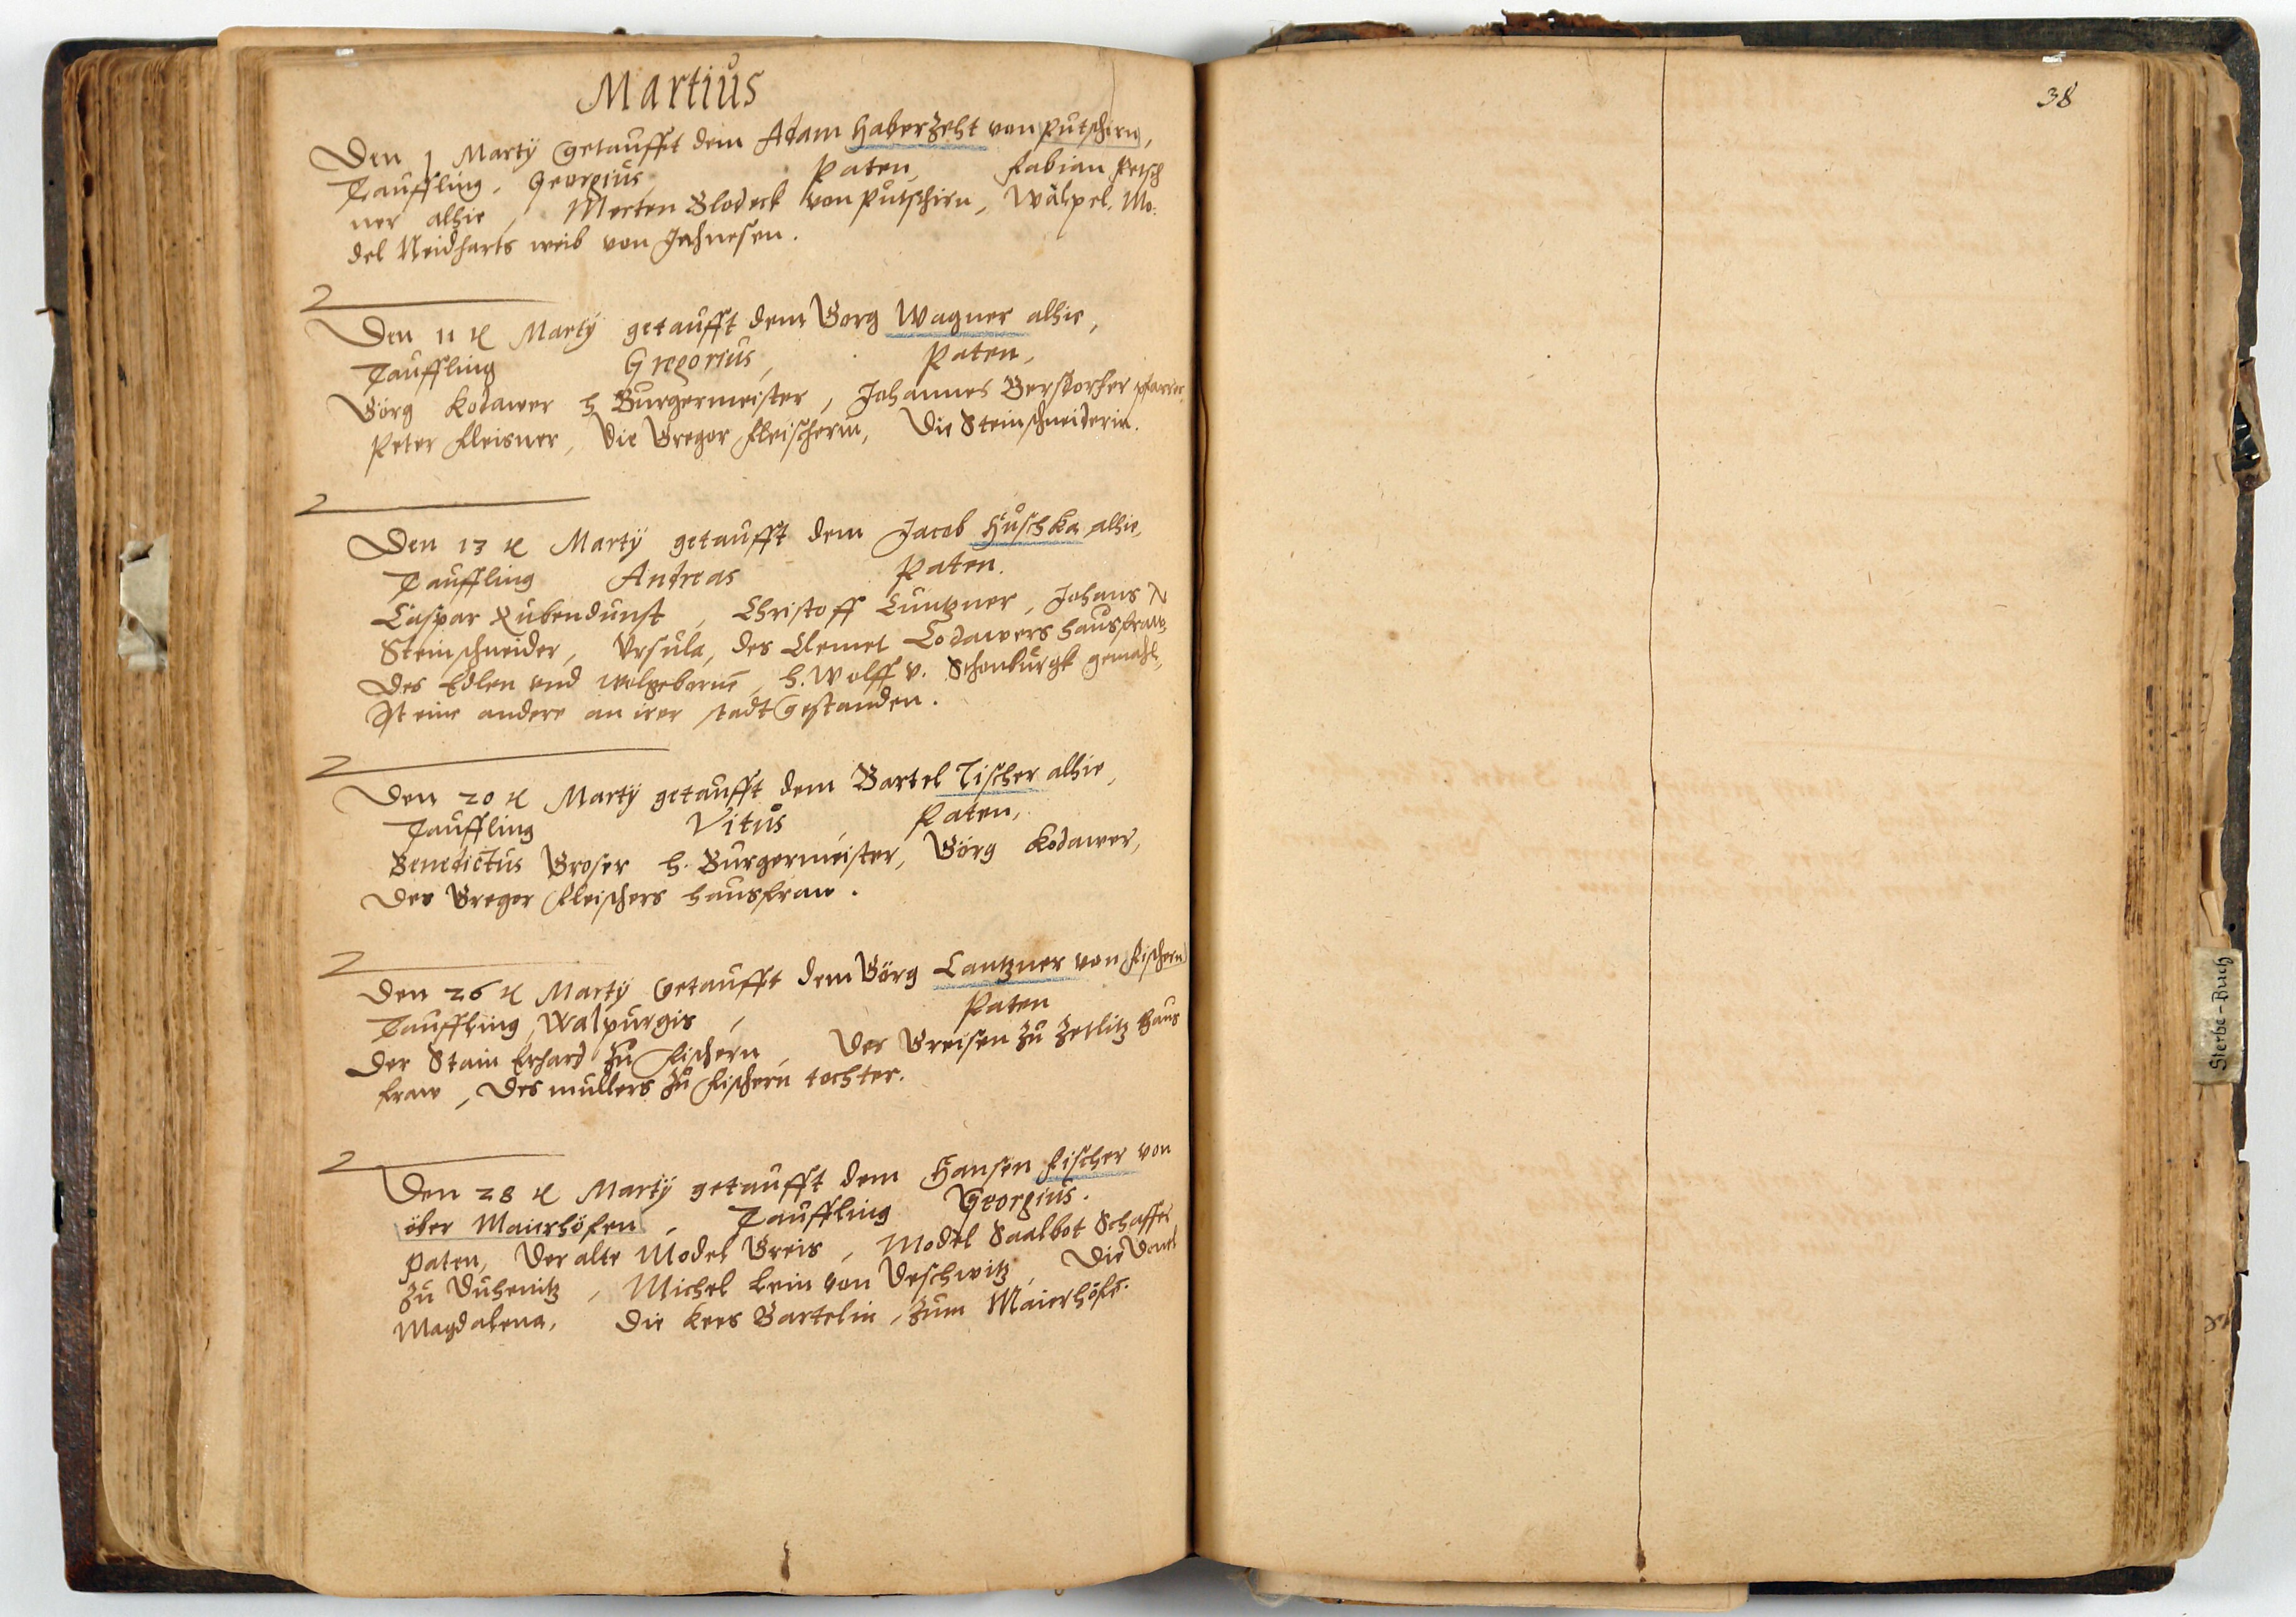 Martiůs
Den 1 Martÿ getaufft dem Adam Haberzeht von Putschirn,
Tauffling, Georgius, Paten, Fabian Petsch
ner alhie, Merten Blodeck von Putschirn, Walpel, Mo:
del Neidharts weib von Jahnesen.
Den 11 Martÿ getaufft dem Görg Wagner alhie,
Tauffling Gregorius, Paten,
Görg Kodawer h Burgermeister, Johannes Berstorfer pfarrer,
Peter Fleisner, Die Gregor Fleischerin, Die Steinschneiderin.
Den 13 Martÿ getaufft dem Jacob Hůschka alhie,
Tauffling Andreas Paten.
Caspar Rubendunst, Christoff Cuntzner, Johans
Steinschneider, Ursula, des Clemet Codawers hausfraw,
Des Edlen und wolgebornē, h. Wolff v. Schonburgk gemahl,
Ist eine andere an irer stadt gestanden.
Den 20 Martÿ getaufft dem Bartel Tischer alhie,
Tauffling Vitůs, Paten,
Benedictus Groser h. Burgermeister, Görg Kodawer,
Des Gregor Fleischers hausfraw.
Den 26 Martÿ getaufft dem Görg Lantzner von Fischern
Tauffling, Walpurgis, Paten
Der Stain Erhard zu Fischern, Der Greisen zu Zetlitz haus
fraw, Des mullers zu Fischern tochter.
Den 28 Martÿ getaufft dem Hansen Fischer von
ober Maierhöfen, Tauffling Georgius.
Paten, Der alte Model Greis, Model Saalbot Schaffer
zu Duhenitz, Michel Lein von Deschwitz, Die
Magdalena, Die Kees Bartelin, zum Maierhöfē.
38
Sterbe-Buch